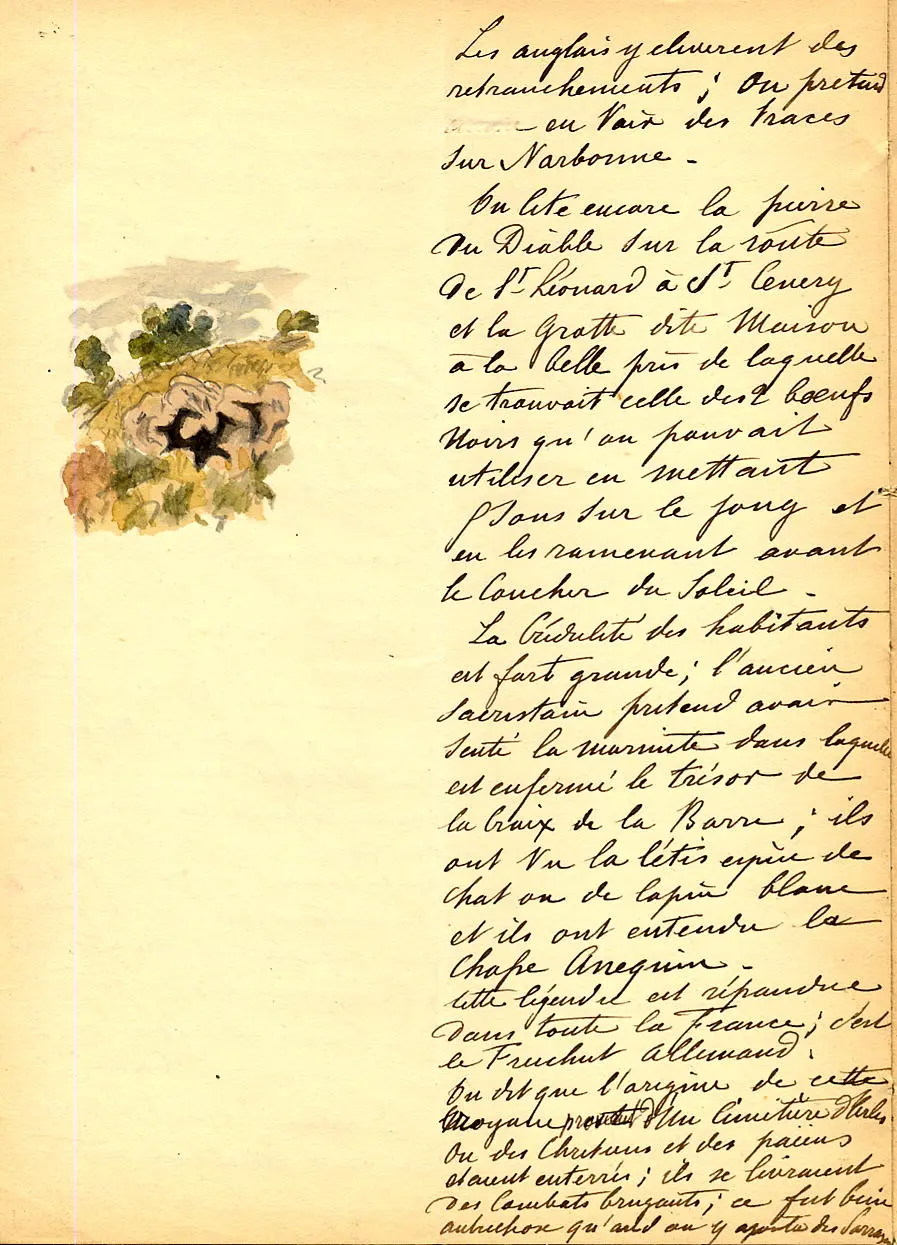 Les anglais y eleverent des
retranchements ; On pretend
- en Voir des traces
Sur Narbonne -
On Cite encore la pierre
Du Diable Sur la route
De St Léonard à St Cenery
et la Grotte dite Maison
à la belle près de laquelle
se trouvait celle des 2 bœufs
Noirs qu'on pouvait
utiliser en mettant
Sous Sur le joug et
en les ramenant avant
le Coucher du Soleil -
La Crédulité des habitants
est fort grande ; l'ancien
Sacristain pretend avoir
Senti la marmite dans laquelle
est enfermé le trésor de
la Croix de la Barre ; ils
ont Vu la létis espèce de
chat ou de lapin blanc
et ils ont entendu la
Chasse Annequin -
Cette légende est répandue
Dans toute la France ; c'est
le Allemand.
On dit que l'origine de cette
Croyance provient d'Un Cimetière d'Arles
Ou des Chretiens et des païens
etaient enterrés ; ils se livraient
Des Combats bruyants ; ce fut bien
autrechose qu'and on y apporta des Sarrasins